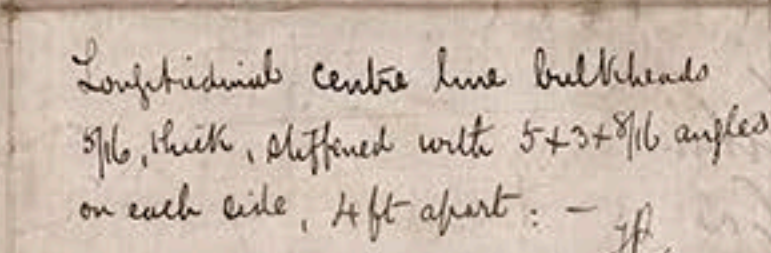 Longitudinal centre line bulkheads
5/16, thick, stiffened with 5+3+8/16 angles
on each side, 4 ft apart: —